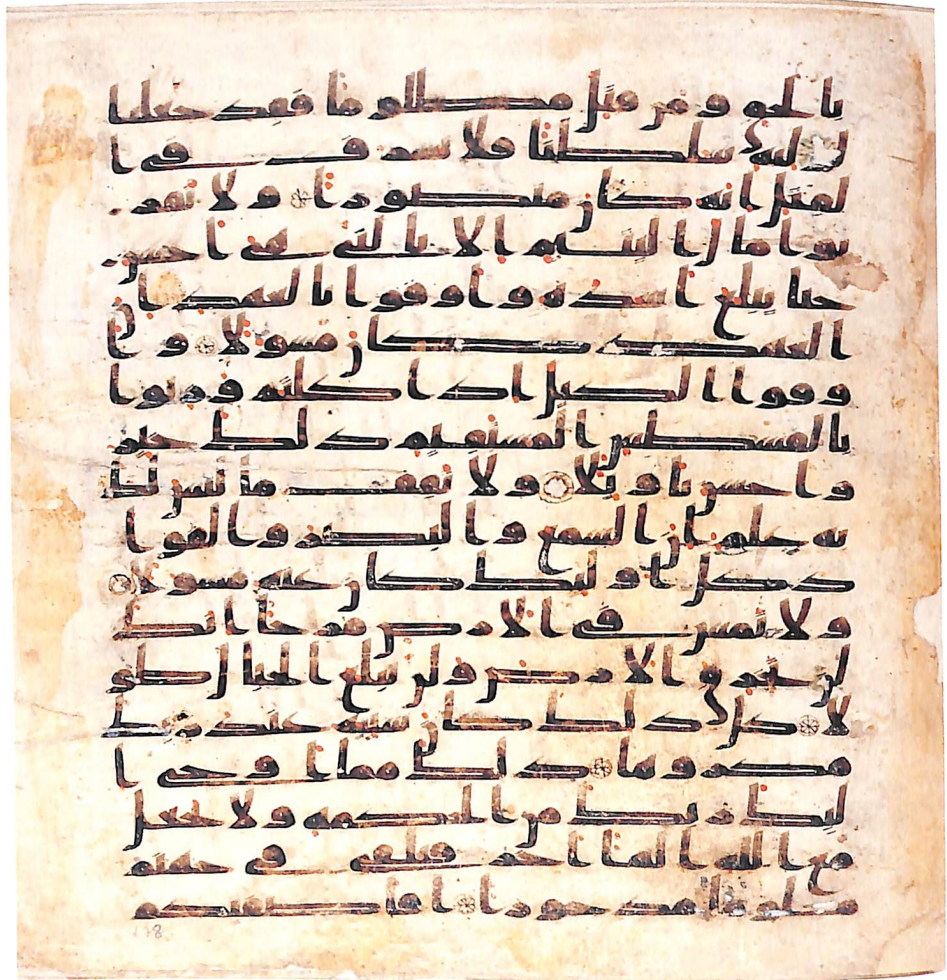 بالحق ومن قتل مظلوما فقد جعلنا
لوليه سلطنا فلا يسرف في ا
لقتل انه كان منصورا ولا تقر
بوا مال اليتيم الا بالتي هي احسن
حتا يبلغ اشده واوفوا بالعهد ان
العهد كان مسولا وا
وفوا الكيل اذا كلتم وزنوا
بالقسطس المستقيم ذلك خير
واحسن تاويلا ولا تقف ما ليس لك
به علم ان السمع والبصر والفوا
د كل اولئك كان عنه مسولا
ولا تمش في الارض مرحا انك
لن تخرق الارض ولن تبلغ الجبال طو
لا كل ذلك كان سيئه عند ربك
مكروها ذلك مما اوحى ا
ليك ربك من الحكمه ولا تجعل
مع الله الها اخر فتلقى في جهنم
ملوما مدحورا افاصفيكم